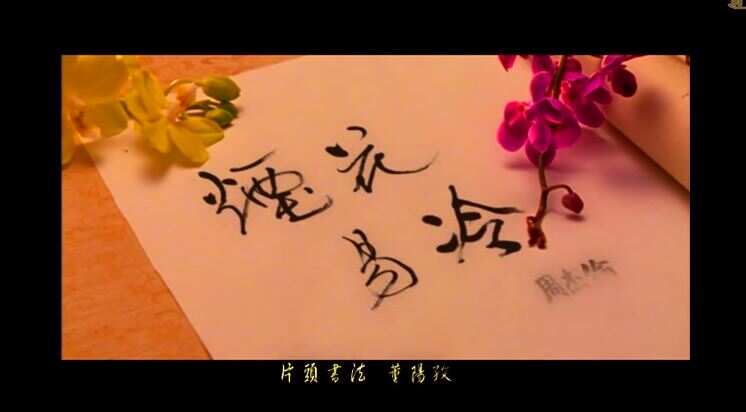 煙花
易冷
周杰倫
片頭書法 董陽孜